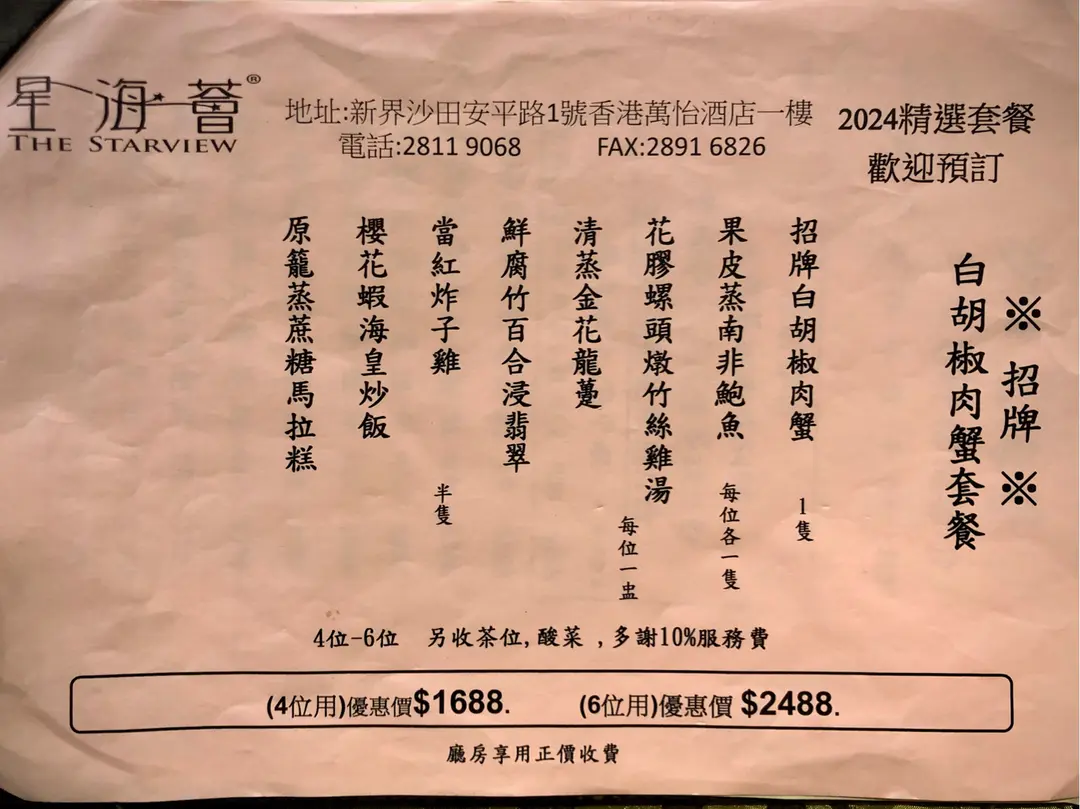 星海薈®
THE STARVIEW
地址:新界沙田安平路1號香港萬怡酒店一樓
電話:2811 9068 FAX:2891 6826
2024精選套餐
歡迎預訂
※ 招牌 ※
白胡椒肉蟹套餐
招牌白胡椒肉蟹 1隻
果皮蒸南非鮑魚 每位各一隻
花膠螺頭燉竹絲雞湯 每位一盅
清蒸金花龍躉
鮮腐竹百合浸翡翠
當紅炸子雞 半隻
櫻花蝦海皇炒飯
原籠蒸蔗糖馬拉糕
4位-6位 另收茶位,酸菜 ,多謝10%服務費
(4位用)優惠價$1688. (6位用)優惠價 $2488.
廳房享用正價收費